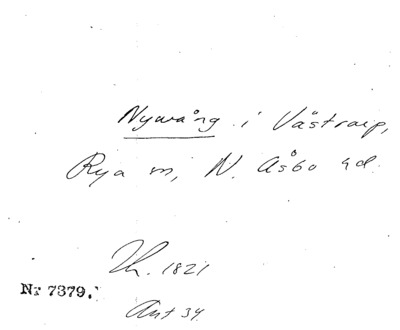 Nywång i Västrarp,
Rya sn, N. Åsbo hd.
Th. 1821
Nr 7379.
Ant 34